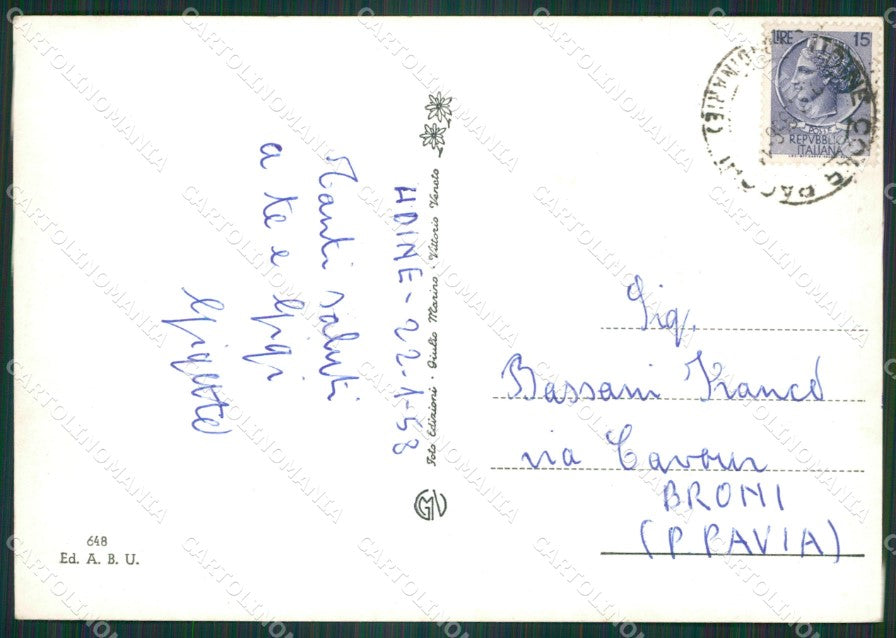 UDINE - 22-1-58
Tanti saluti
a te e Gigi
Foto Edizioni · Giulio Marino · Vittorio Veneto
648
Ed. A. B. U.
LIRE 15
POSTE
REPVBBLICA
ITALIANA
UDINE
Sig.
Bassani Franco
via Cavour
BRONI
(P PAVIA)
CARTOLINOMANIA